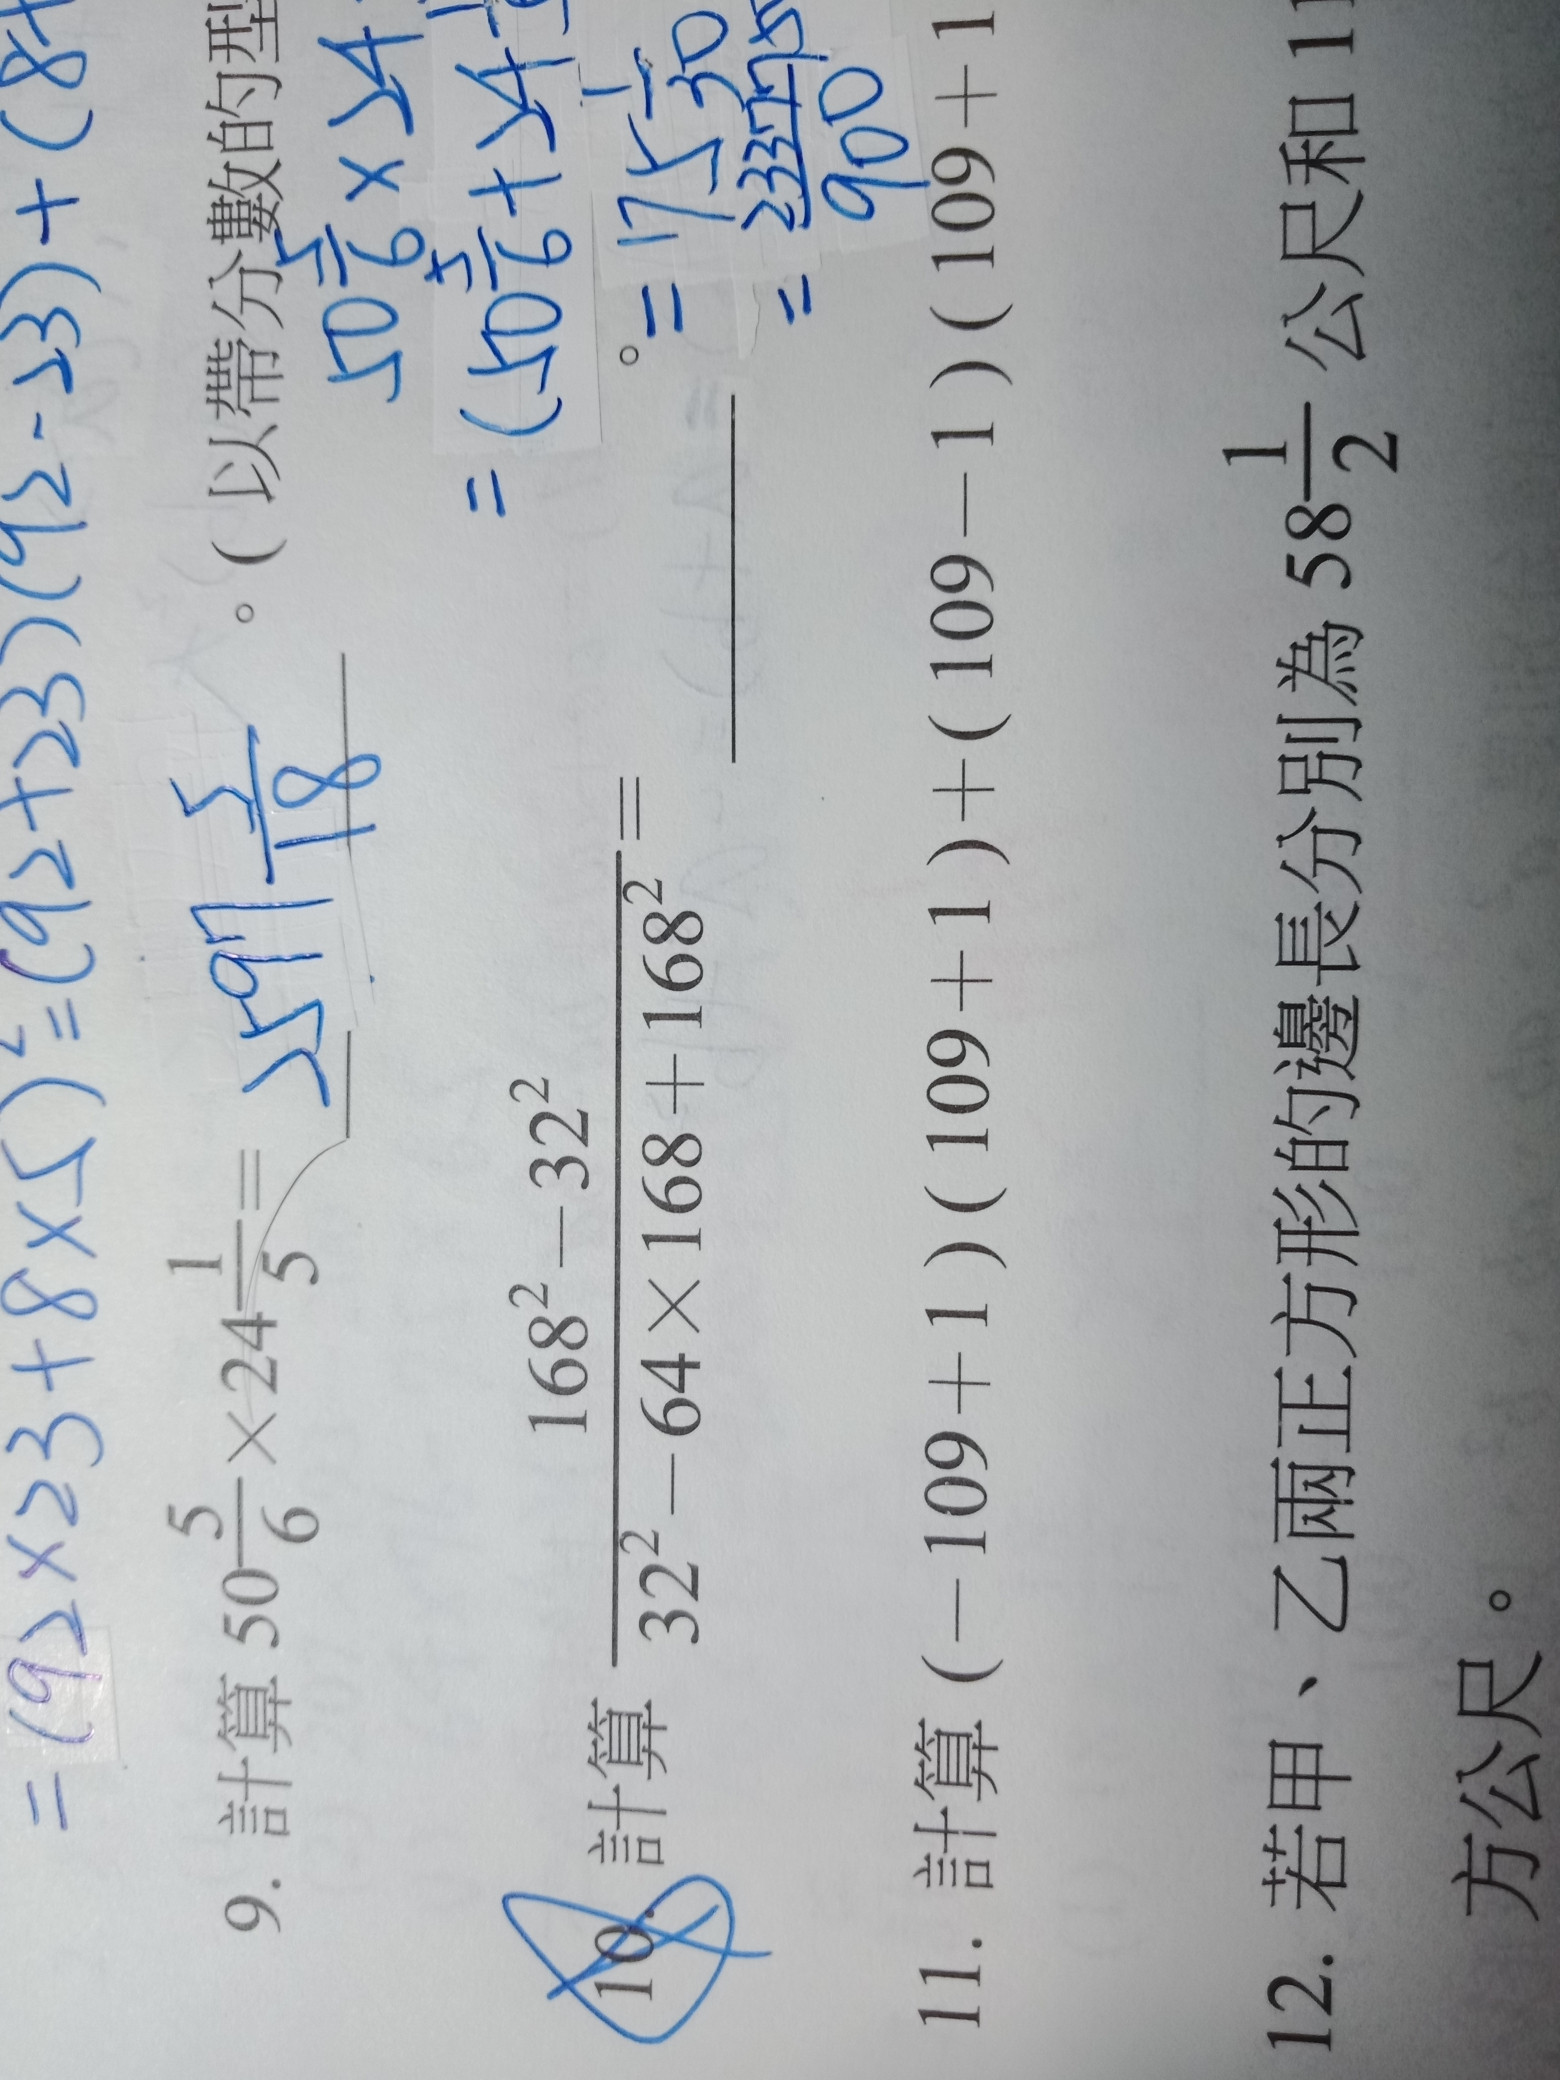 =(92×23+8×5)²=(92+23)(92-23)+(8+
9. 計算 50 5/6 × 24 1/5 = 597 5/18 。( 以帶分數的型
50 5/6 × 24
=(50 5/6 + 24
10. 計算 (168²－32²)/(32²－64×168＋168²) = ______ 。
= 175 1/30
=
900
11. 計算 (－109＋1)(109＋1)＋(109－1)(109＋1
12. 若甲、乙兩正方形的邊長分別為 58 1/2 公尺和 11
方公尺。